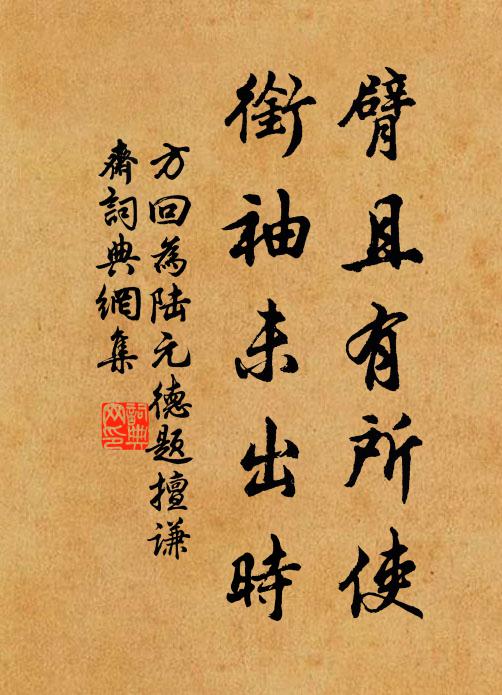 臂且有所使
銜袖未出時
方回為陸元德題擅謙
齋詞典網集
詞典網印